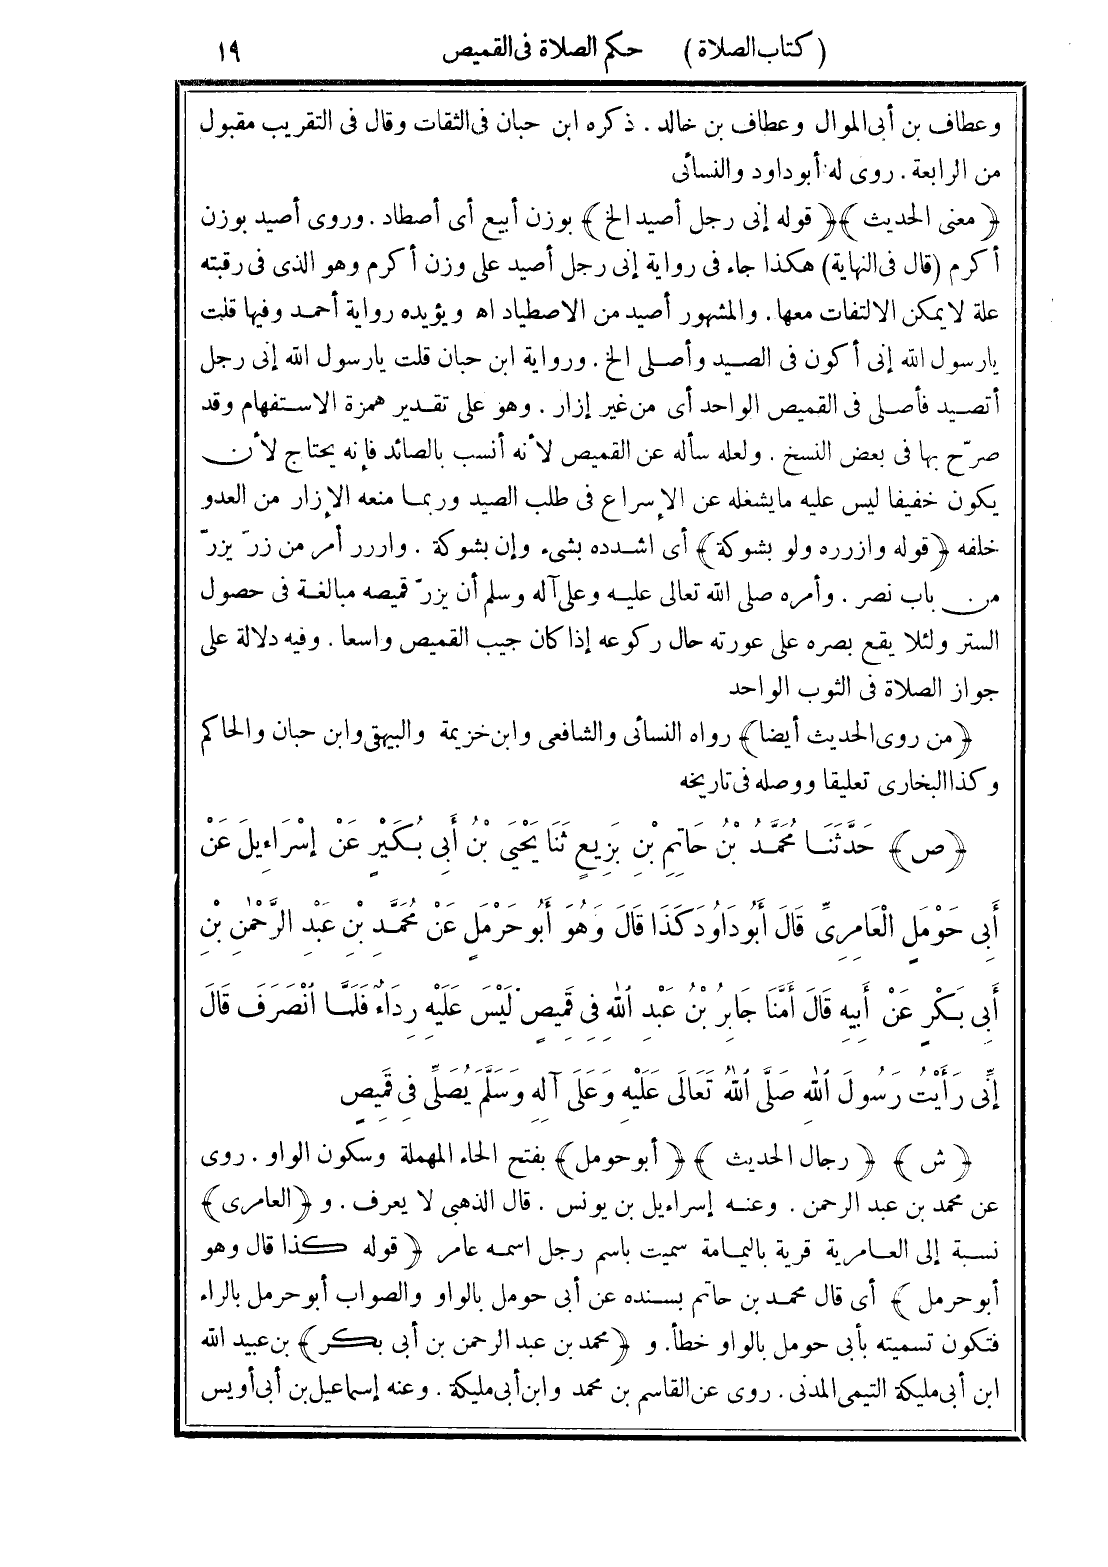 (كتاب الصلاة) حكم الصلاة فى القميص ١٩
وعطاف بن أبى الموال وعطاف بن خالد . ذكره ابن حبان فى الثقات وقال فى التقريب مقبول
من الرابعة . روى له أبوداود والنسائى
﴿معنى الحديث﴾ ﴿قوله إنى رجل أصيد الخ﴾ بوزن أبيع أى أصطاد . وروى أصيد بوزن
أكرم (قال فى النهاية) هكذا جاء فى رواية إنى رجل أصيد على وزن أكرم وهو الذى فى رقبته
علة لايمكن الالتفات معها. والمشهور أصيد من الاصطياد اه ويؤيده رواية أحمد وفيها قلت
يارسول الله إنى أكون فى الصيد وأصلى الخ . ورواية ابن حبان قلت يارسول الله إنى رجل
أتصيد فأصلى فى القميص الواحد أى من غير إزار . وهو على تقدير همزة الاستفهام وقد
صرّح بها فى بعض النسخ . ولعله سأله عن القميص لأنه أنسب بالصائد فإنه يحتاج لأن
يكون خفيفا ليس عليه مايشغله عن الإسراع فى طلب الصيد وربما منعه الإزار من العدو
خلفه ﴿قوله وازرره ولو بشوكة﴾ أى اشدده بشىء وإن بشوكة . وازرر أمر من زرّ يزرّ
من باب نصر . وأمره صلى الله تعالى عليه وعلى آله وسلم أن يزرّ قميصه مبالغة فى حصول
الستر ولئلا يقع بصره على عورته حال ركوعه إذا كان جيب القميص واسعا . وفيه دلالة على
جواز الصلاة فى الثوب الواحد
﴿من روى الحديث أيضا﴾ رواه النسائى والشافعى وابن خزيمة والبيهقى وابن حبان والحاكم
وكذا البخارى تعليقا ووصله فى تاريخه
﴿ص﴾ حَدَّثَنَا مُحَمَّدُ بْنُ حَاتِمِ بْنِ بَزِيعٍ ثَنَا يَحْيَى بْنُ أَبِى بُكَيْرٍ عَنْ إِسْرَاءِيلَ عَنْ
أَبِى حَوْمَلٍ الْعَامِرِىِّ قَالَ أَبُودَاوُدَ كَذَا قَالَ وَهُوَ أَبُو حَرْمَلٍ عَنْ مُحَمَّدِ بْنِ عَبْدِ الرَّحْمٰنِ بْنِ
أَبِى بَكْرٍ عَنْ أَبِيهِ قَالَ أَمَّنَا جَابِرُ بْنُ عَبْدِ اللهِ فِى قَمِيصٍ لَيْسَ عَلَيْهِ رِدَاءٌ فَلَمَّا انْصَرَفَ قَالَ
إِنِّى رَأَيْتُ رَسُولَ اللهِ صَلَّى اللهُ تَعَالَى عَلَيْهِ وَعَلَى آلِهِ وَسَلَّمَ يُصَلِّى فِى قَمِيصٍ
﴿ش﴾ ﴿رجال الحديث﴾ ﴿أبو حومل﴾ بفتح الحاء المهملة وسكون الواو . روى
عن محمد بن عبد الرحمن . وعنه إسراءيل بن يونس . قال الذهبى لا يعرف . و ﴿العامرى﴾
نسبة إلى العامرية قرية باليمامة سميت باسم رجل اسمه عامر ﴿قوله كذا قال وهو
أبو حرمل﴾ أى قال محمد بن حاتم بسنده عن أبى حومل بالواو والصواب أبو حرمل بالراء
فتكون تسميته بأبى حومل بالواو خطأ. و ﴿محمد بن عبد الرحمن بن أبى بكر﴾ بن عبيد الله
ابن أبى مليكة التيمى المدنى . روى عن القاسم بن محمد وابن أبى مليكة . وعنه إسماعيل بن أبى أويس